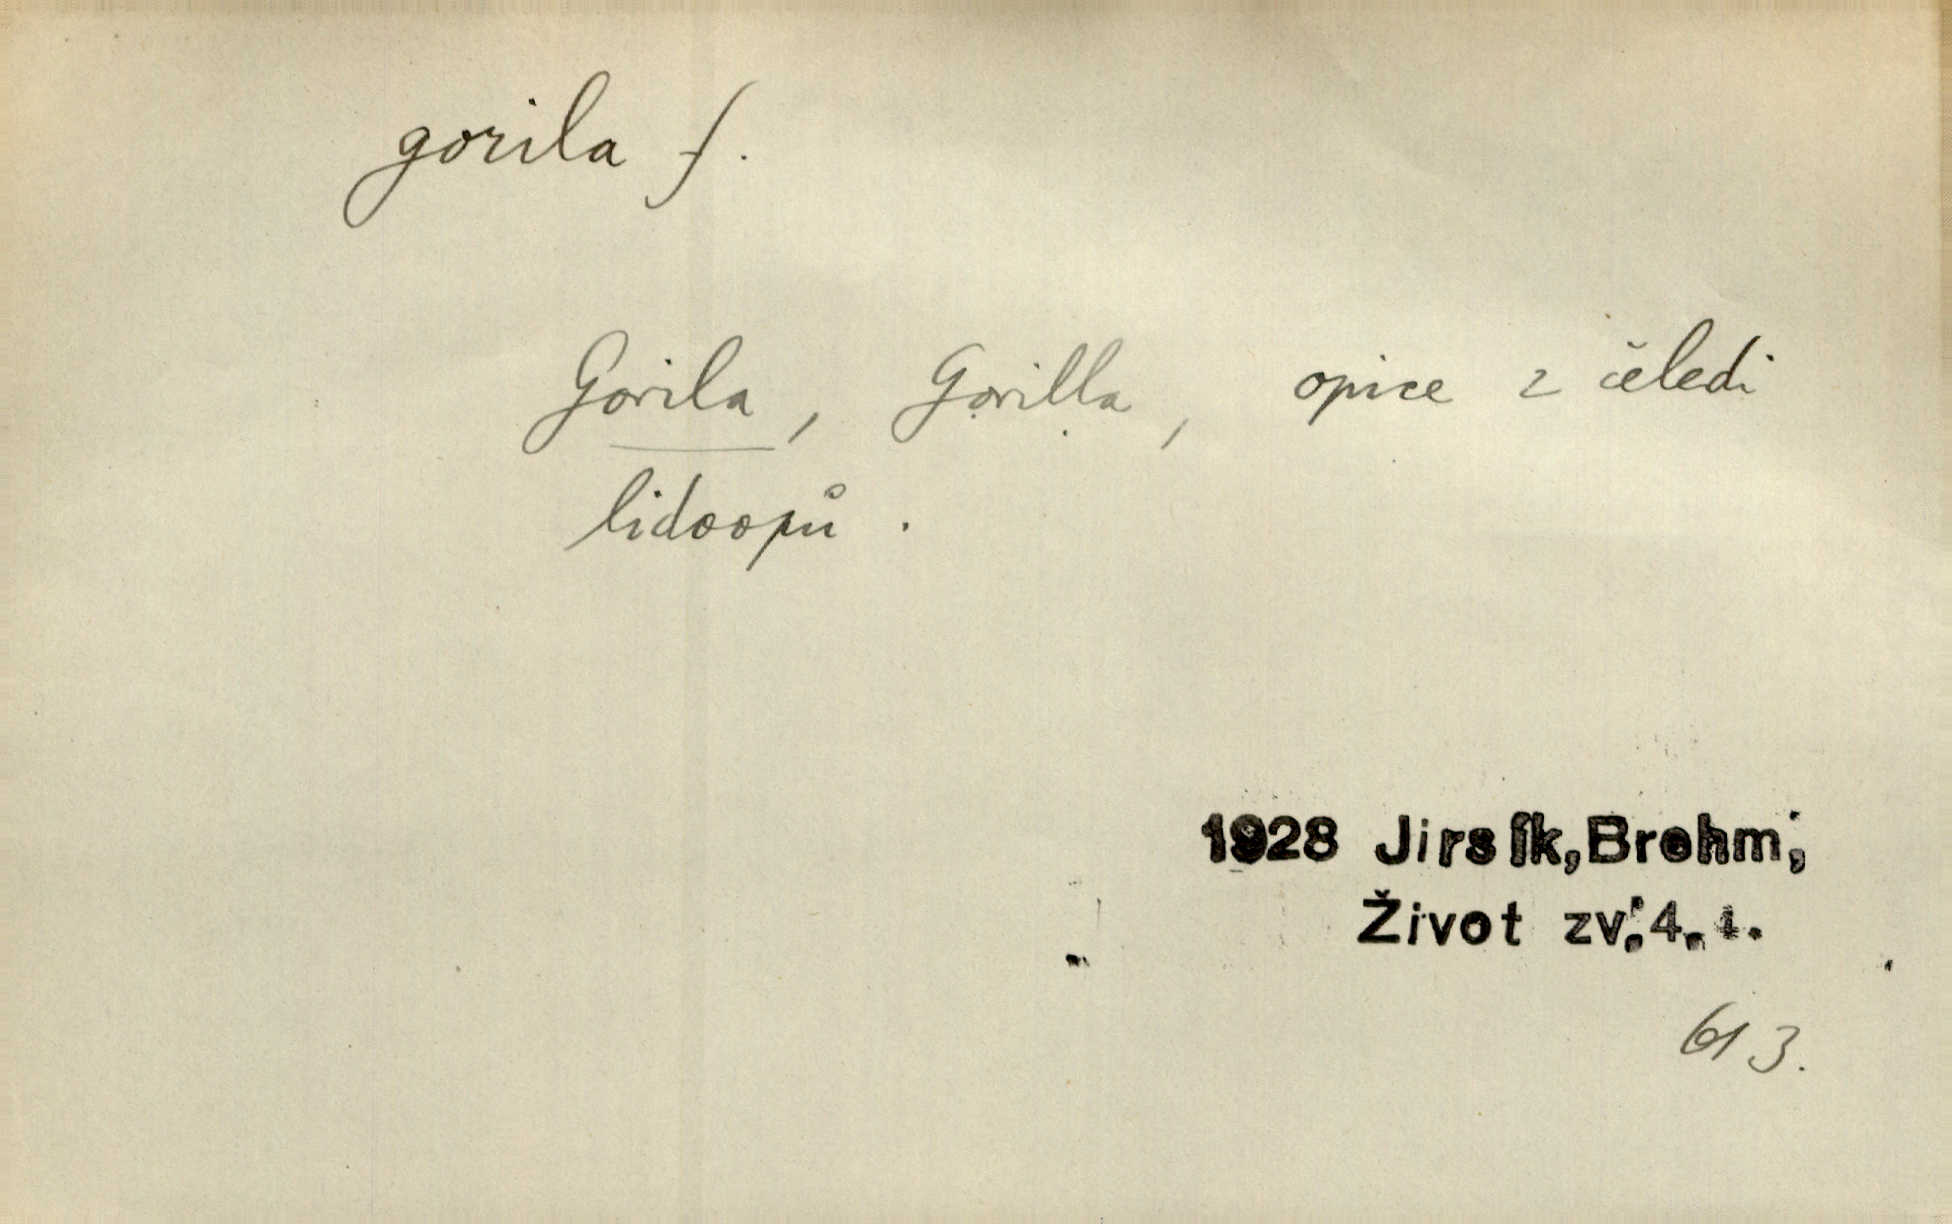 gorila f.
Gorila, Gorilla, opice z čeledi
lidoopů.
1928 Jirsík, Brehm,
Život zv. 4. 1.
613.